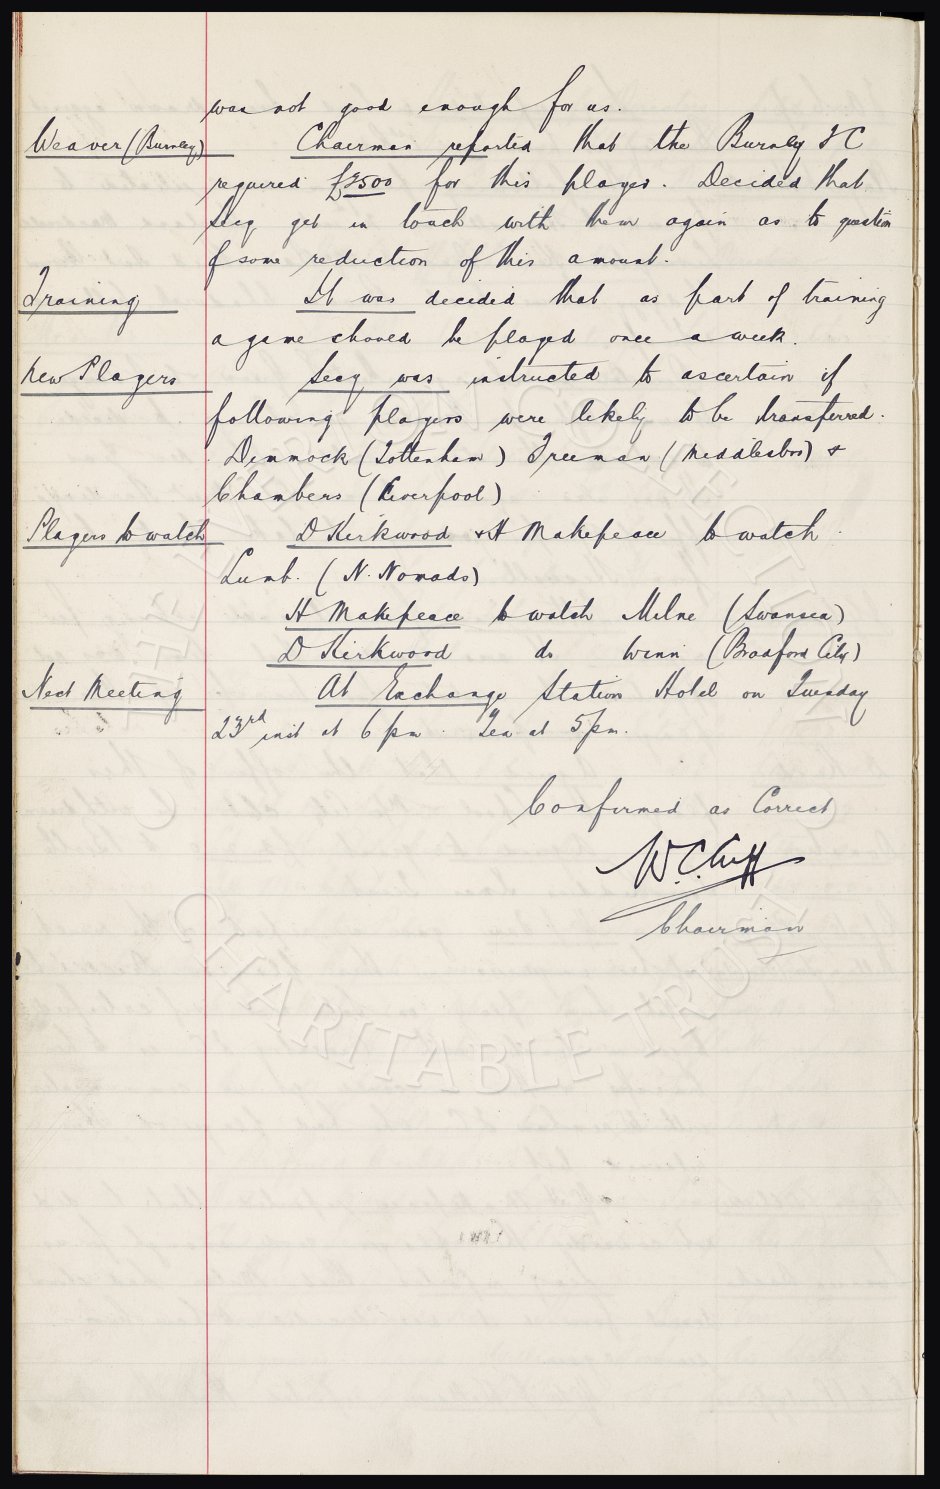 was not good enough for us.
Weaver (Burnley) Chairman reported that the Burnley F C
required £2500 for this player. Decided that
Secy get in touch with them again as to question
of some reduction of this amount.
Training It was decided that as part of training
a game should be played once a week.
New Players Secy was instructed to ascertain if
following players were likely to be transferred.
Dimmock (Tottenham) Freeman (Middlesbro) &
Chambers (Liverpool)
Players to watch D Kirkwood & H Makepeace to watch
Lumb. (N. Nomads)
H Makepeace to watch Milne (Swansea)
D Kirkwood do Winn (Bradford City)
Next Meeting At Exchange Station Hotel on Tuesday
23rd inst at 6 pm. Tea at 5 pm.
Confirmed as Correct
W.C. Cuff
Chairman
CHARITABLE TRUST